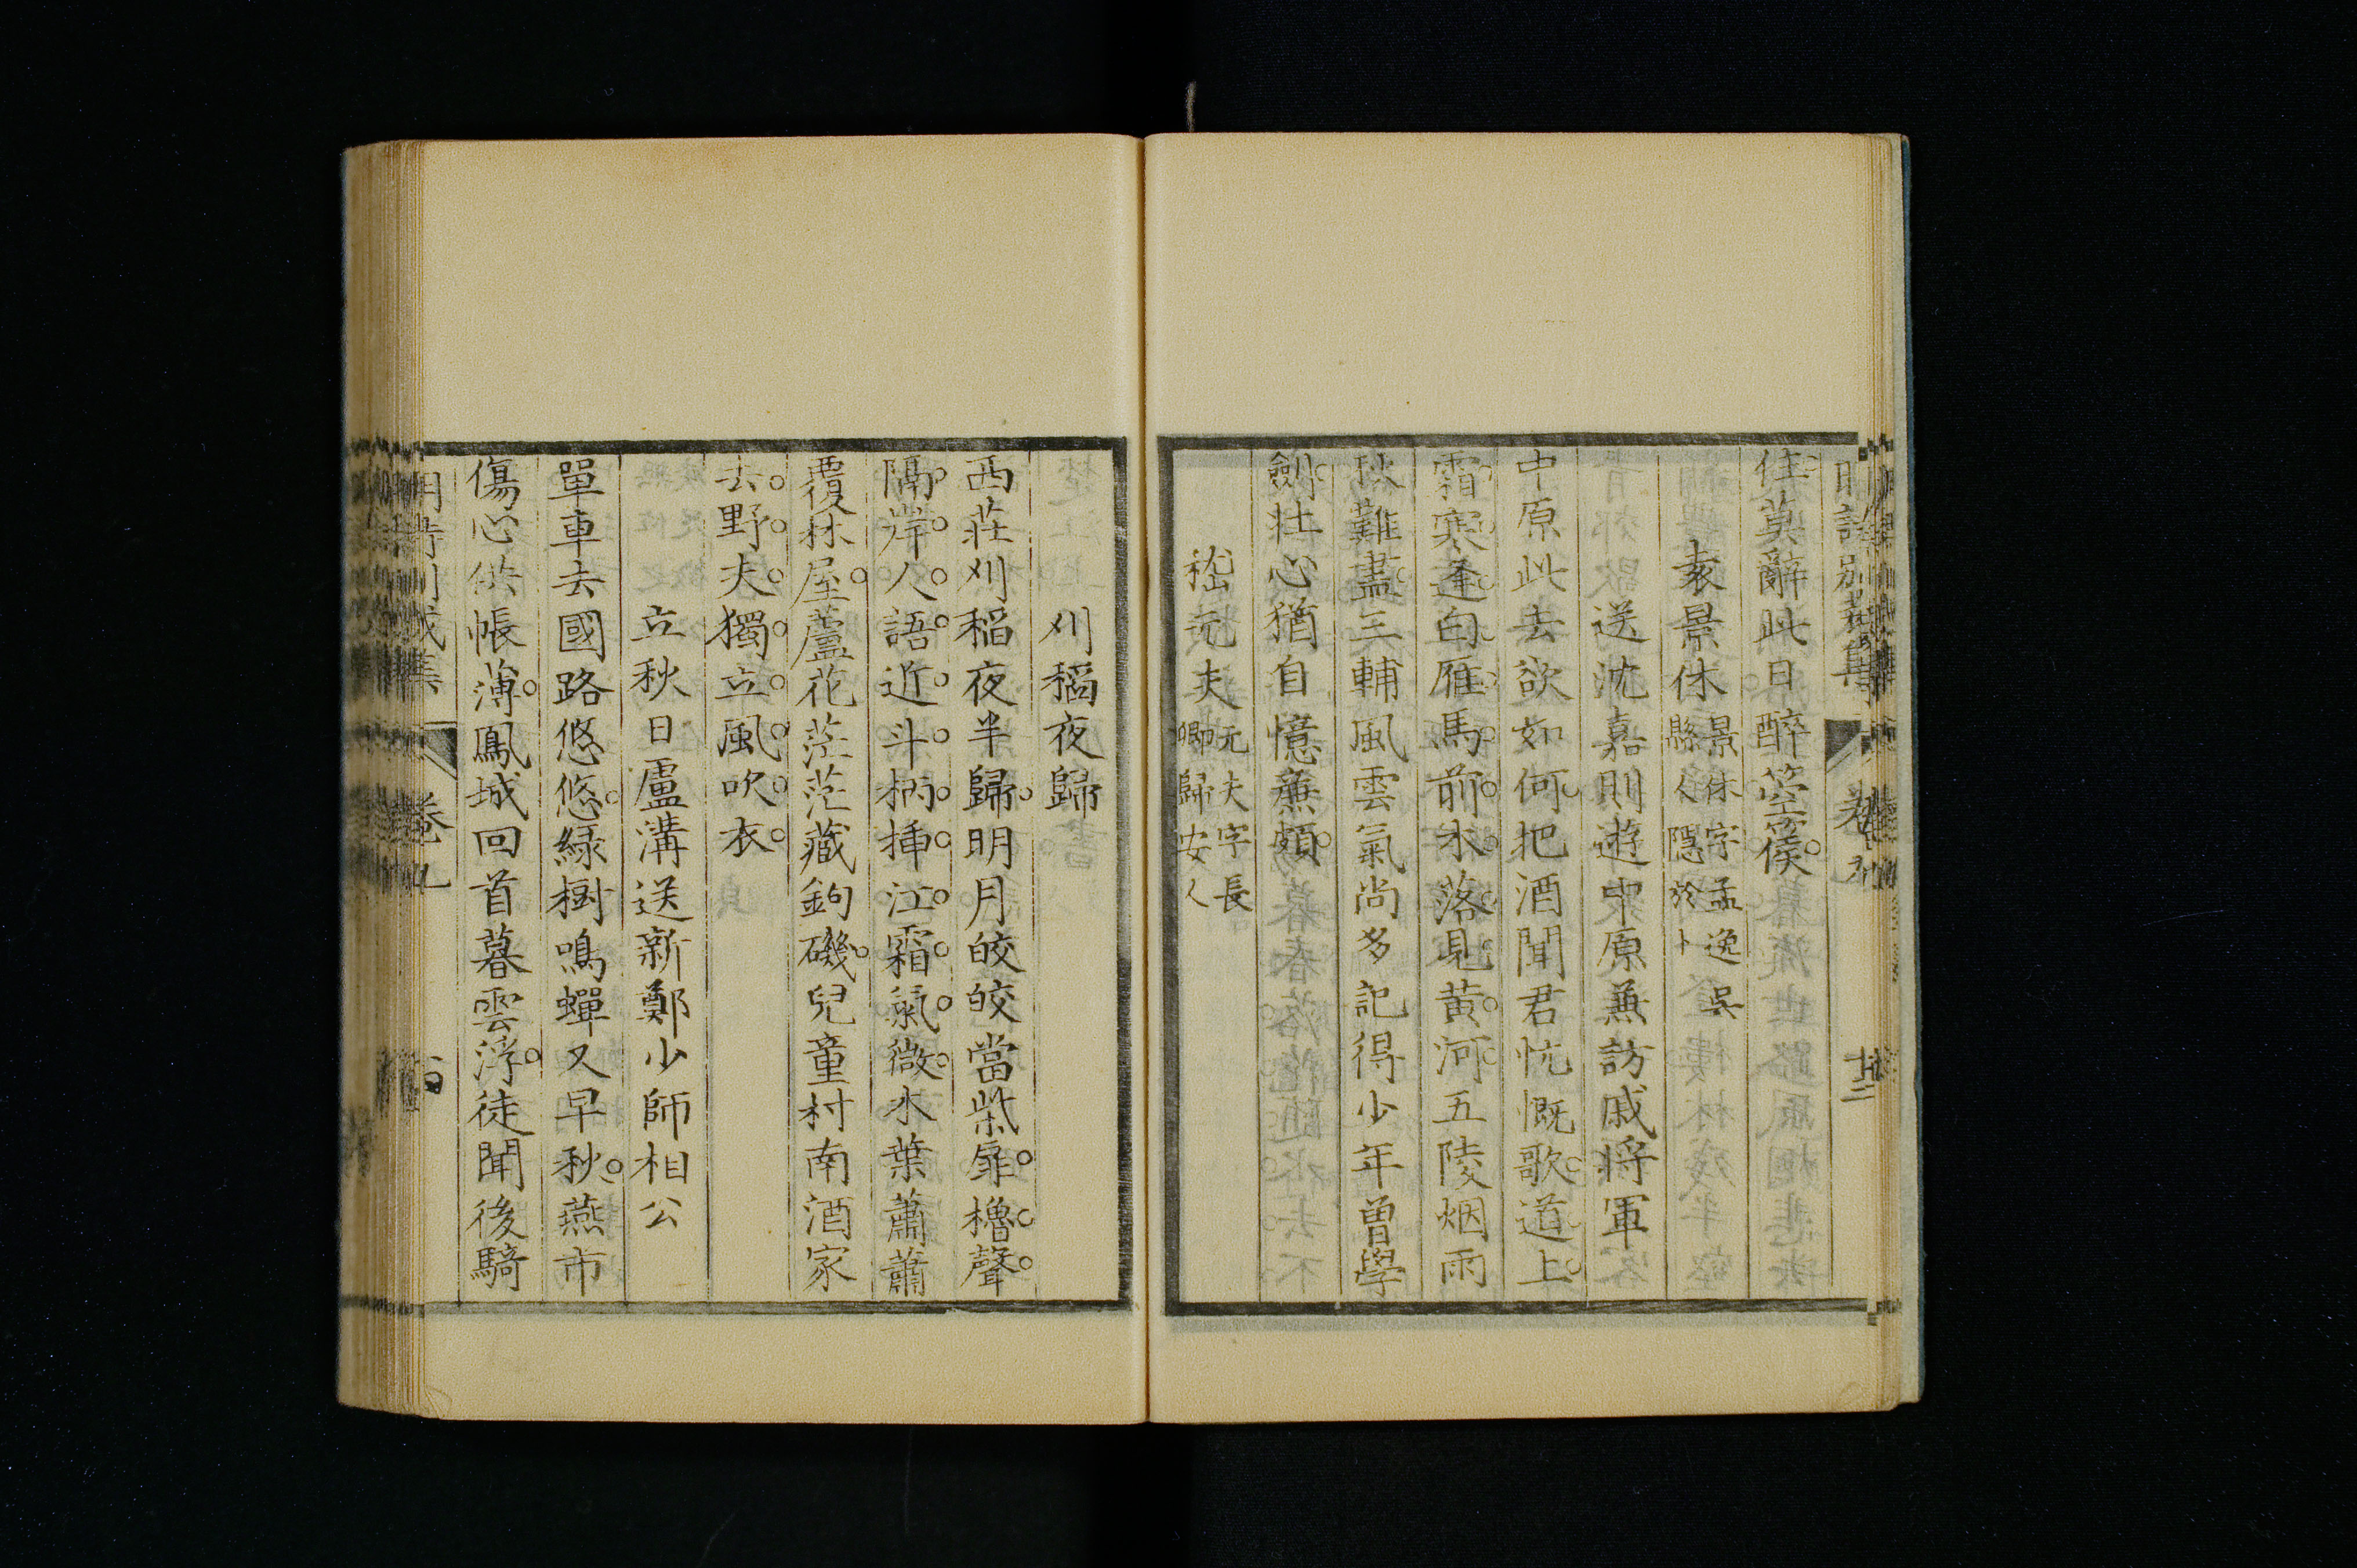 明詩別裁集 卷九 十三
佳莫辭此日醉箜篌
袁景休景休字孟逸吳縣人隱於卜
送沈嘉則遊中原兼訪戚將軍
中原此去欲如何把酒聞君忼慨歌道上
霜寒逢白雁馬前木落見黃河五陵烟雨
秋難盡三輔風雲氣尚多記得少年曾學
劍壯心猶自憶廉頗
嵇元夫元夫字長卿歸安人
刈稻夜歸
西莊刈稻夜半歸明月皎皎當柴扉櫓聲
隔岸人語近斗柄揷江霜氣微木葉蕭蕭
覆林屋蘆花茫茫藏釣磯兒童村南酒家
去野夫獨立風吹衣
立秋日盧溝送新鄭少師相公
單車去國路悠悠緑樹鳴蟬又早秋燕市
傷心供帳薄鳳城回首暮雲浮徒聞後騎
明詩別裁集 卷九